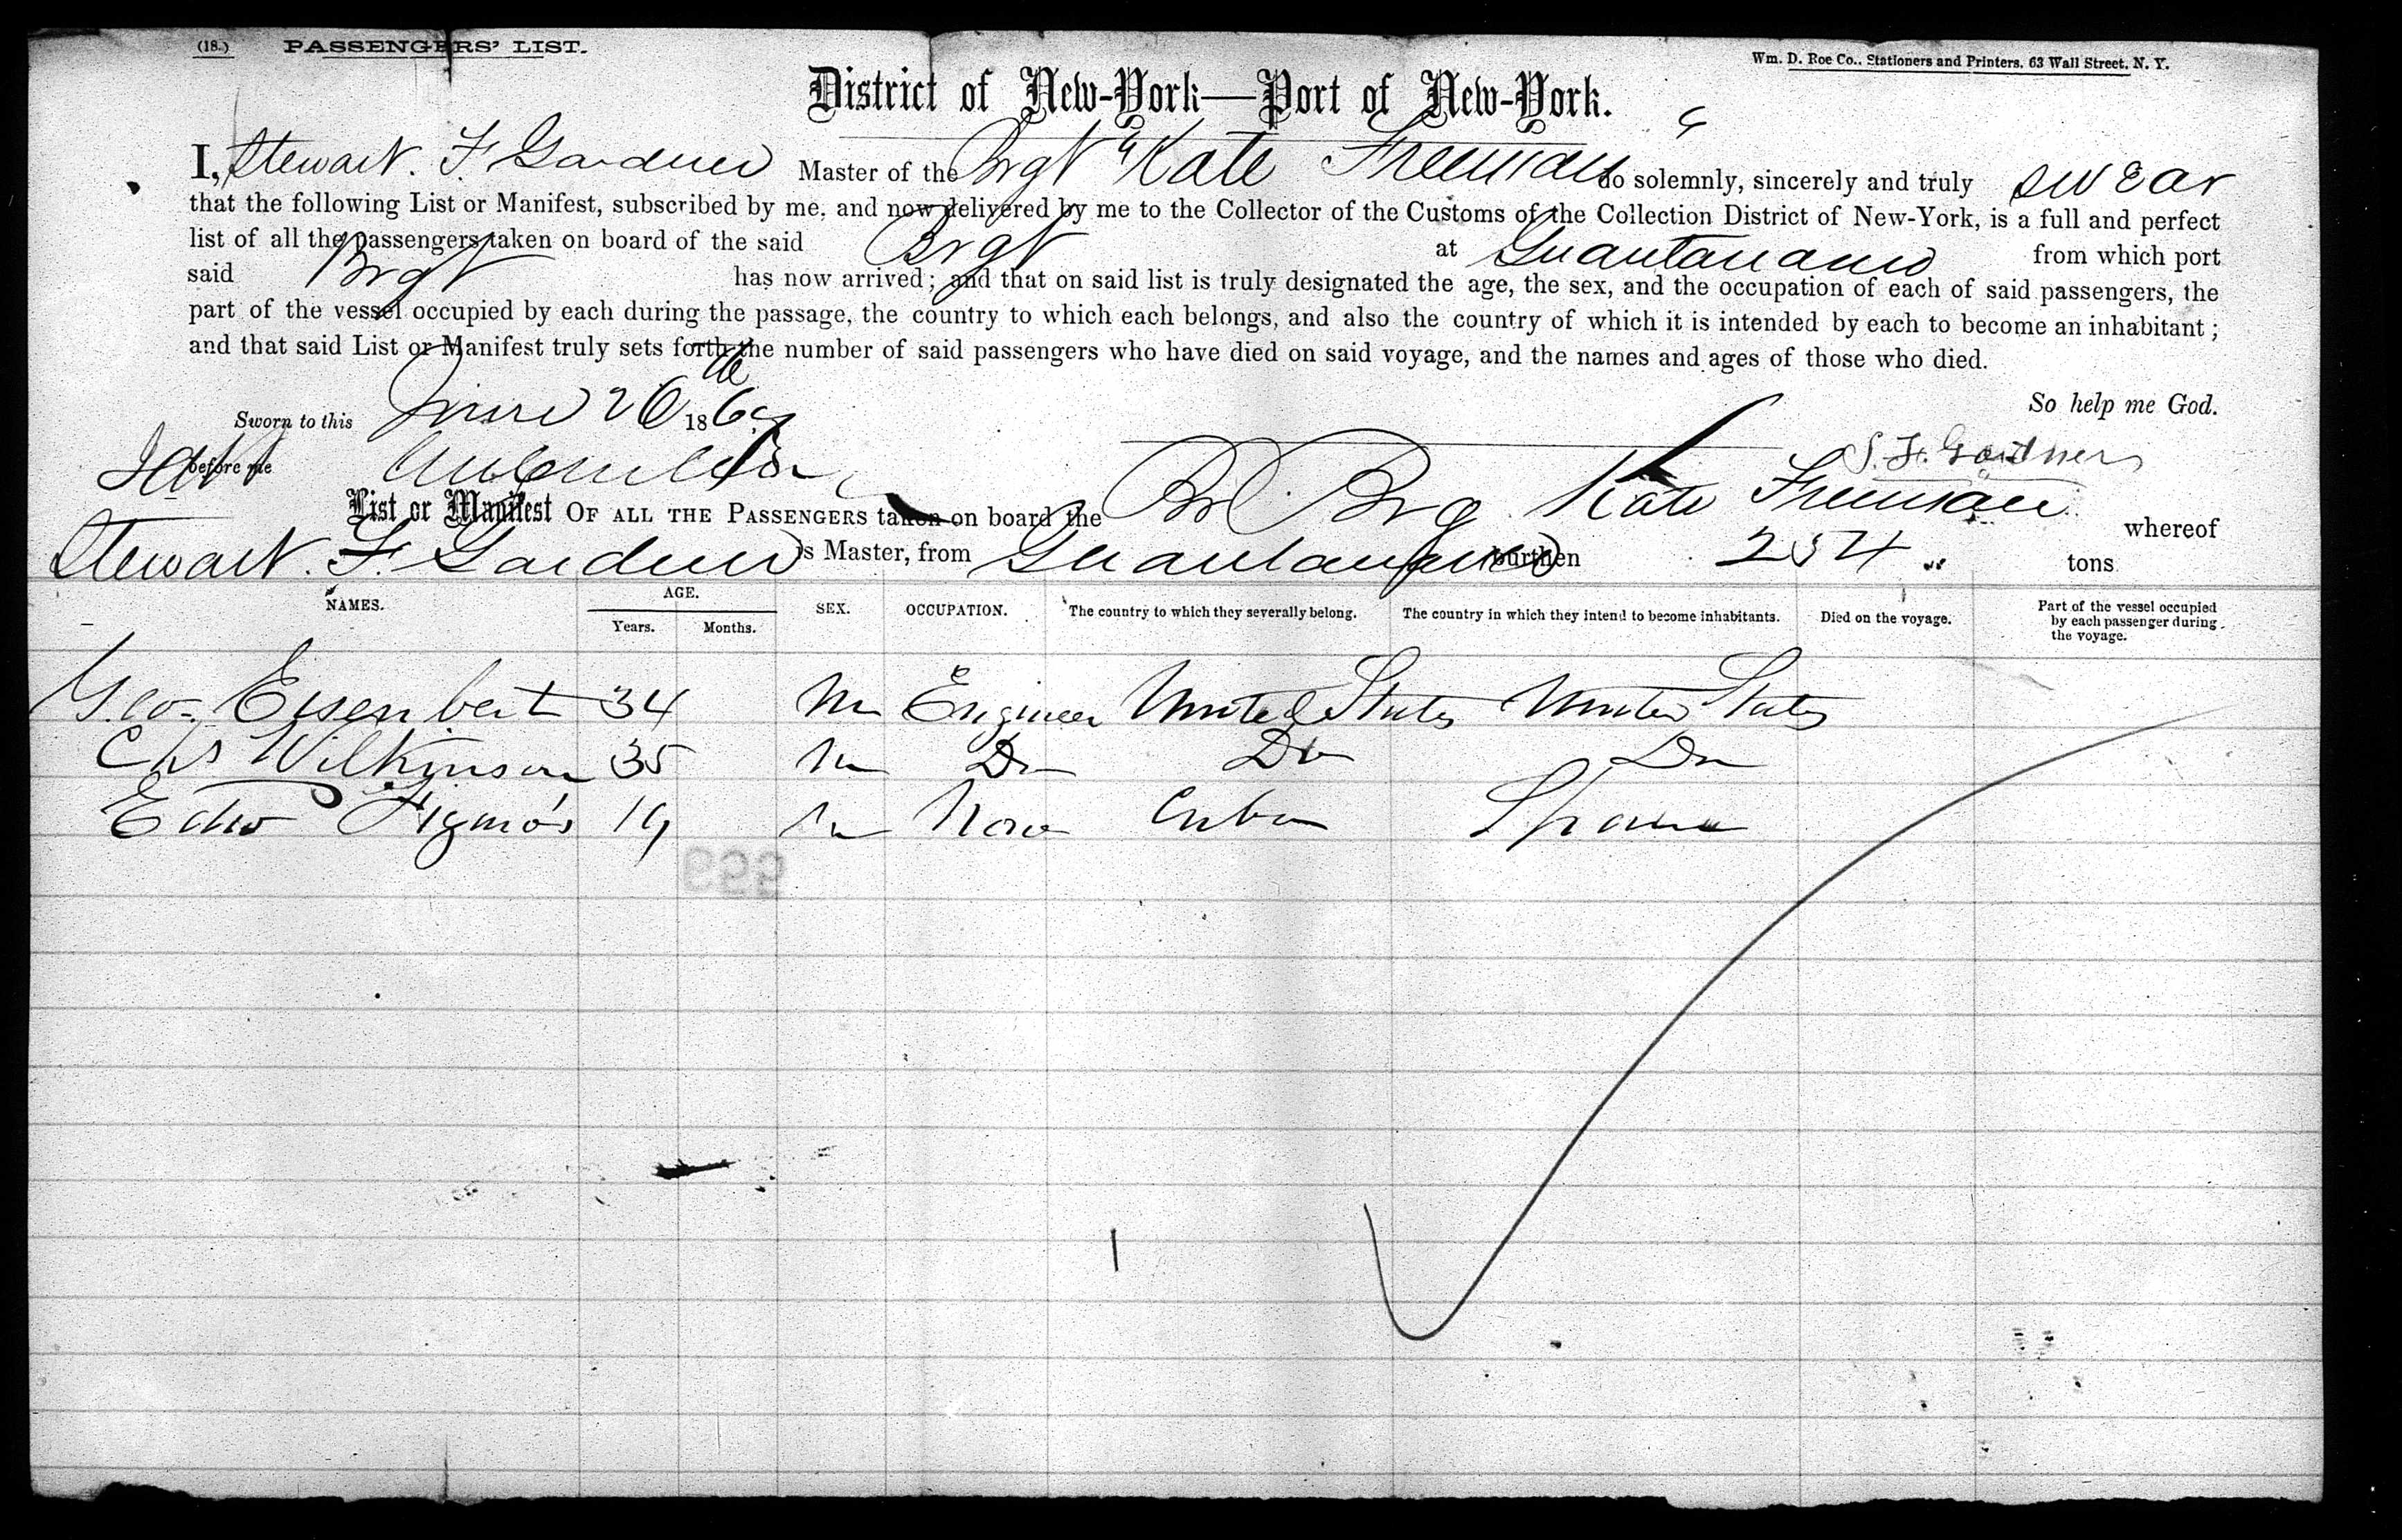 (18.) PASSENGERS' LIST.
Wm. D. Roe Co., Stationers and Printers, 63 Wall Street, N. Y.
District of New-York—Port of New-York.
I, Stewart. F. Gardner Master of the Brgt "Kate Freeman" do solemnly, sincerely and truly swear
that the following List or Manifest, subscribed by me, and now delivered by me to the Collector of the Customs of the Collection District of New-York, is a full and perfect
list of all the passengers taken on board of the said Brgt at Guantanamo from which port
said Brgt has now arrived; and that on said list is truly designated the age, the sex, and the occupation of each of said passengers, the
part of the vessel occupied by each during the passage, the country to which each belongs, and also the country of which it is intended by each to become an inhabitant;
and that said List or Manifest truly sets forth the number of said passengers who have died on said voyage, and the names and ages of those who died.
So help me God.
Sworn to this June 26th 1869
before me
S. F. Gardner
List or Manifest OF ALL THE PASSENGERS taken on board the Br Brg Kate Freeman whereof
Stewart. F. Gardner is Master, from Guantanamo burthen 254 tons
NAMES. AGE. Years. Months. SEX. OCCUPATION. The country to which they severally belong. The country in which they intend to become inhabitants. Died on the voyage. Part of the vessel occupied by each passenger during the voyage.
Geo. Eisenbeit 34 M Engineer United States United States
Chs Wilkinson 35 M Do Do Do
Edw 19 M None Cuba Spain
999